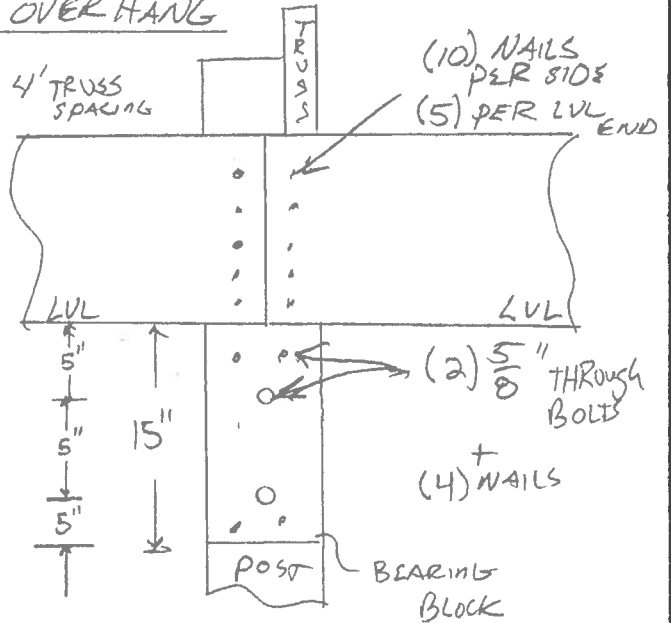 OVERHANG
4' TRUSS
SPACING
TRUSS
(10) NAILS
PER SIDE
(5) PER LVL
END
LVL
LVL
5"
5"
5"
15"
(2) 5/8" THROUGH
BOLTS
+
(4) NAILS
POST
BEARING
BLOCK